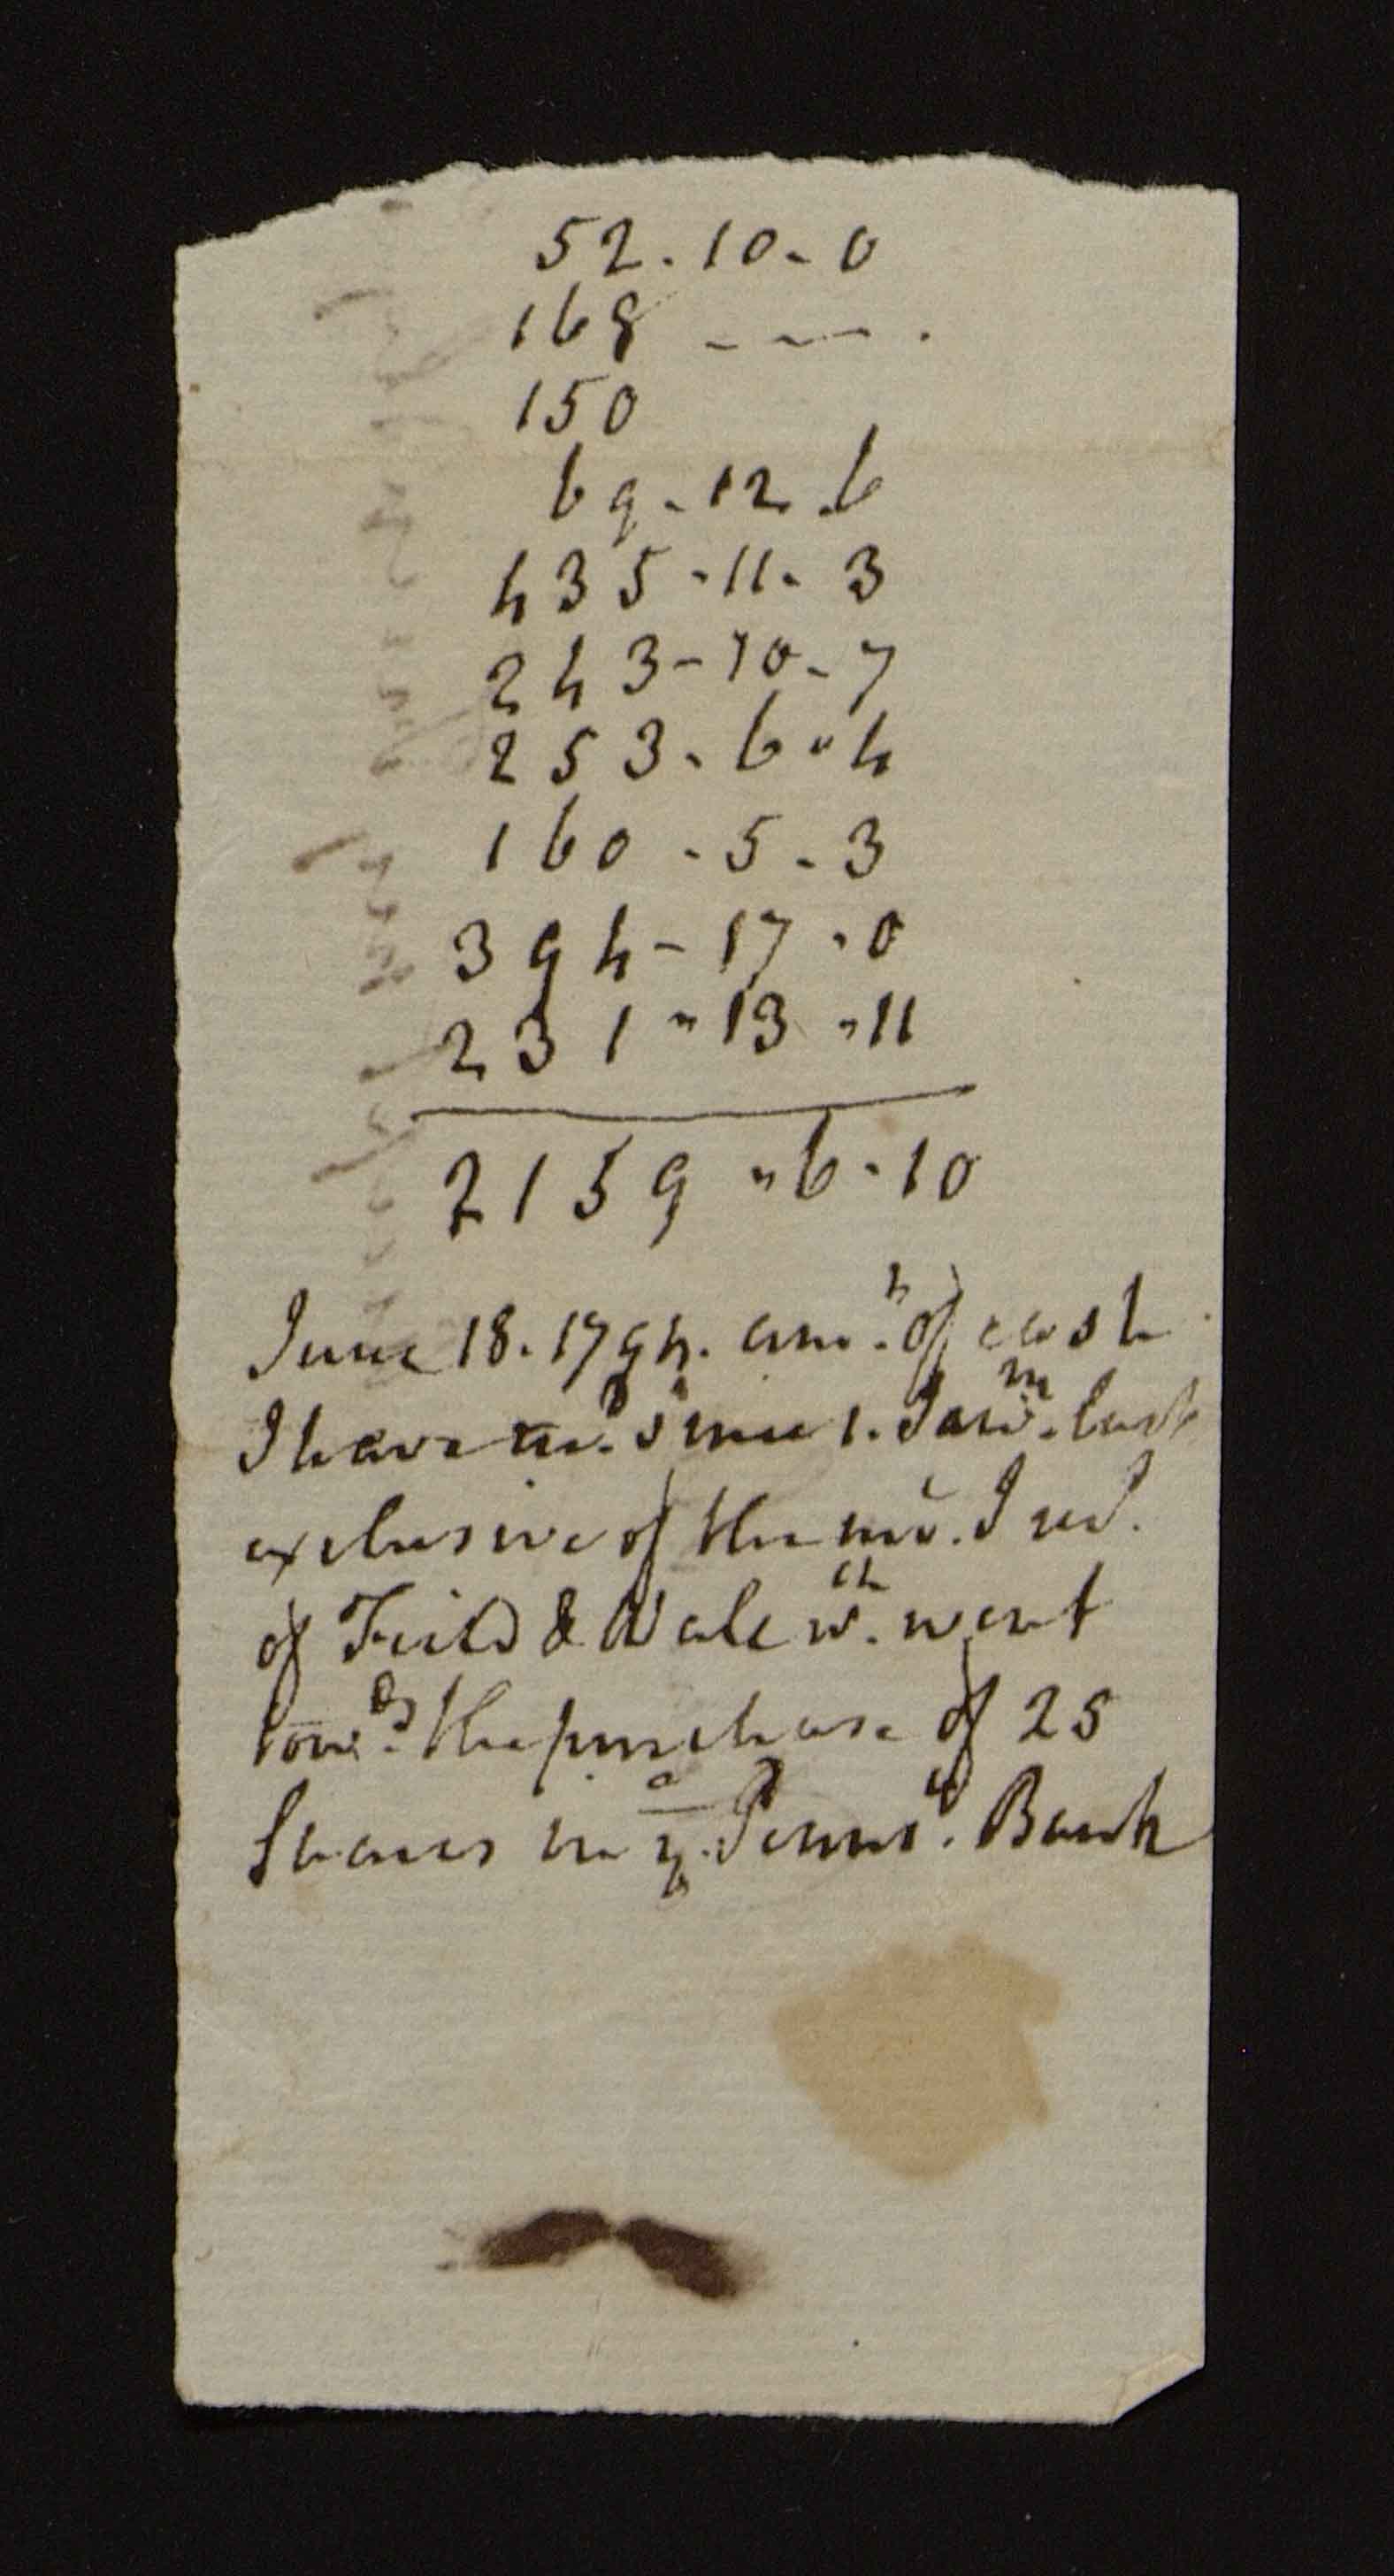 52.10.0
168 - - - .
150
69.12.6
435.11.3
243-10-7
253.6.4
160.5.3
394-17.0
231"13"11
2159"6.10
June 18. 1794. am.t of cash
I have re.d since 1. Last
exclusive of the mo. I red.
of & w.ch went
tow.ds the purchase of 25
Shares in y.e Penns.a Bank